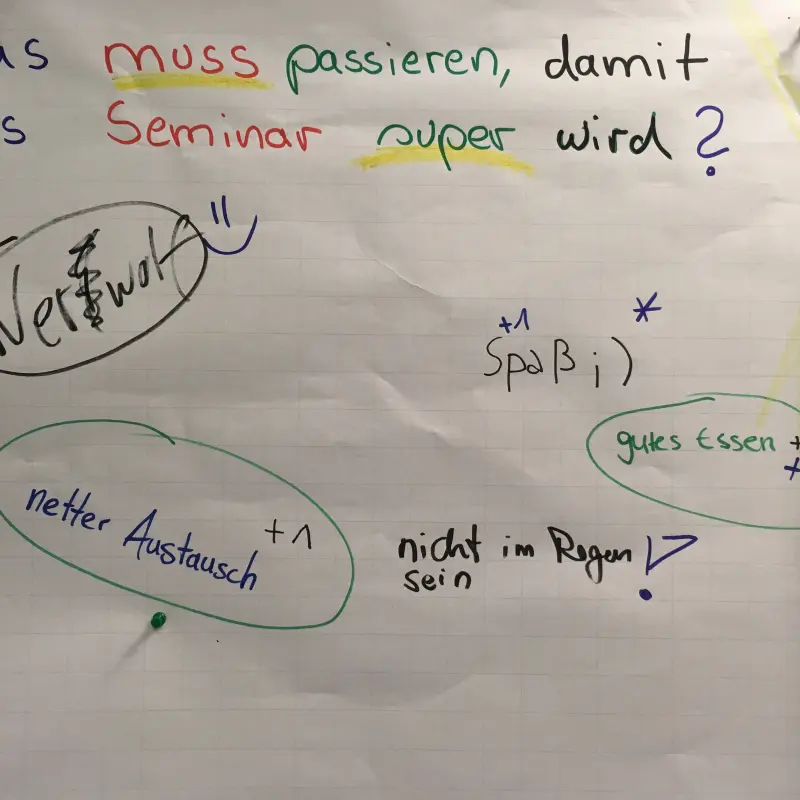 as muss passieren, damit
s Seminar super wird?
Werwolf
+1
Spaß ;) *
gutes Essen +
+
netter Austausch +1
nicht im Regen!
sein